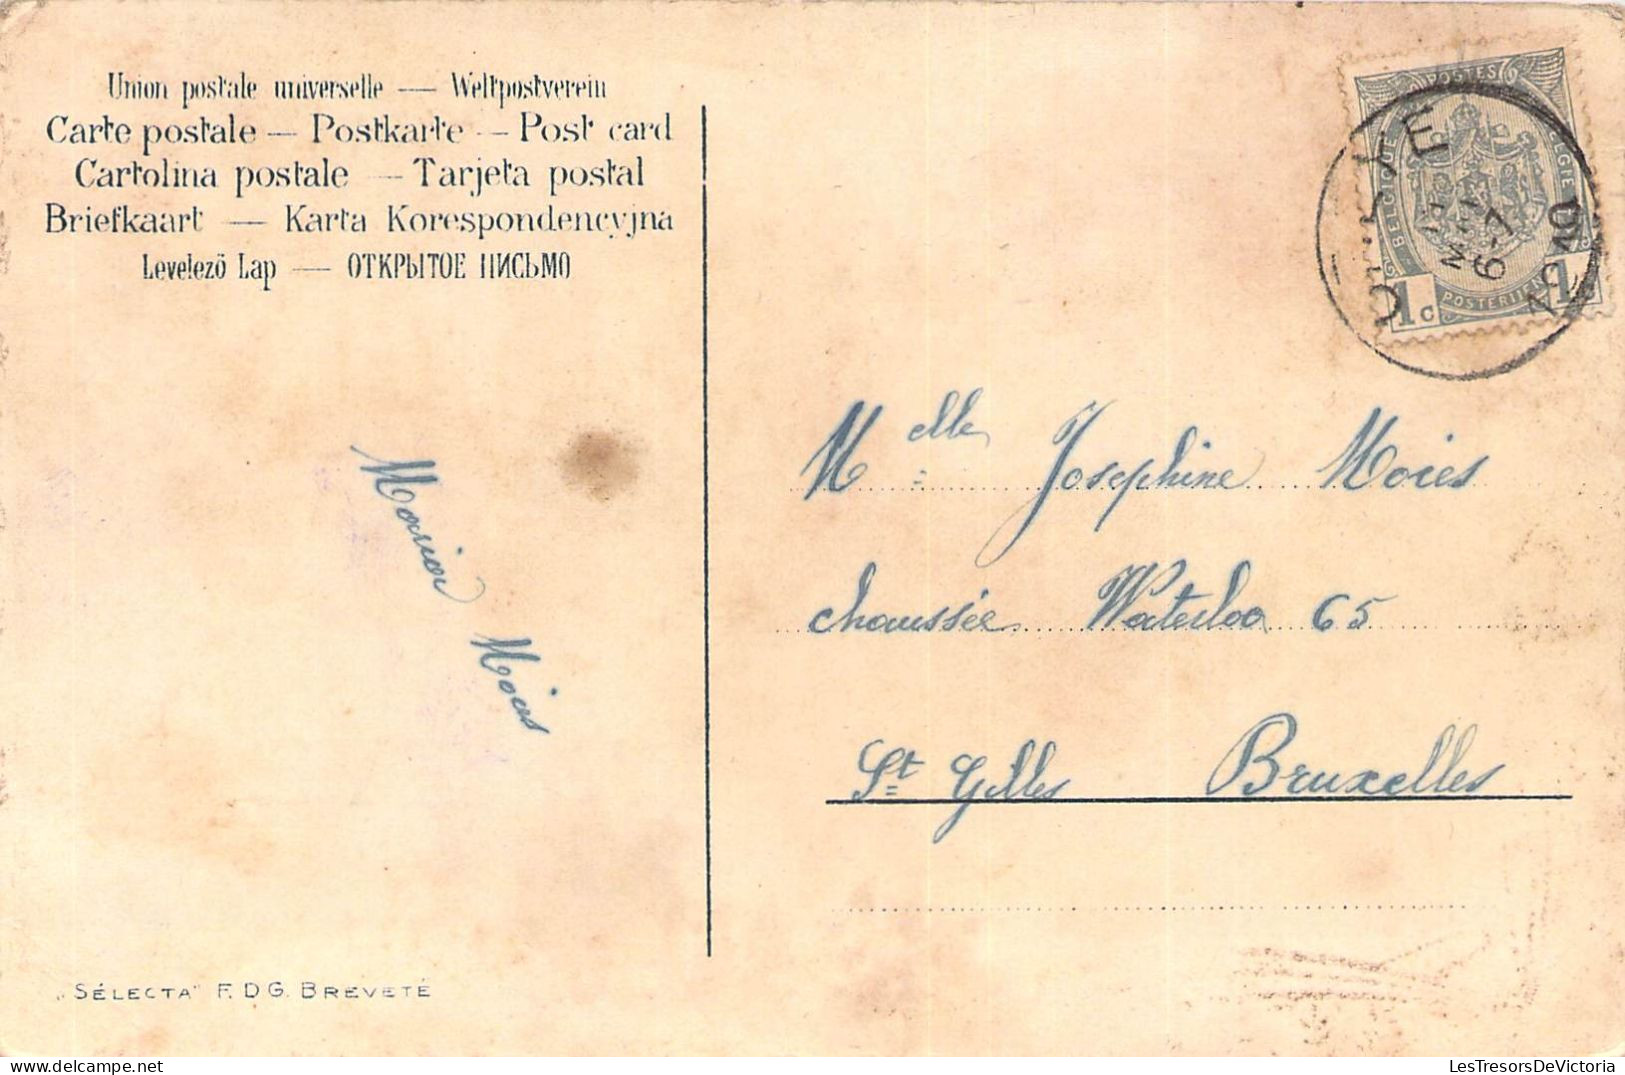 Union postale universelle — Weltpostverein
Carte postale — Postkarte — Post card
Cartolina postale — Tarjeta postal
Briefkaart — Karta Korespondencyjna
Levelező Lap — ОТКРЫТОЕ ПИСЬМО
POSTES
BELGIQUE
BELGIE
POSTERIJEN
1c
1c
6-7
1910
Melle Josephine Moies
chaussée Waterloo 65
St Gilles Bruxelles
Moies
„SÉLECTA" F.D.G. BREVETÉ
LesTresorsDeVictoria